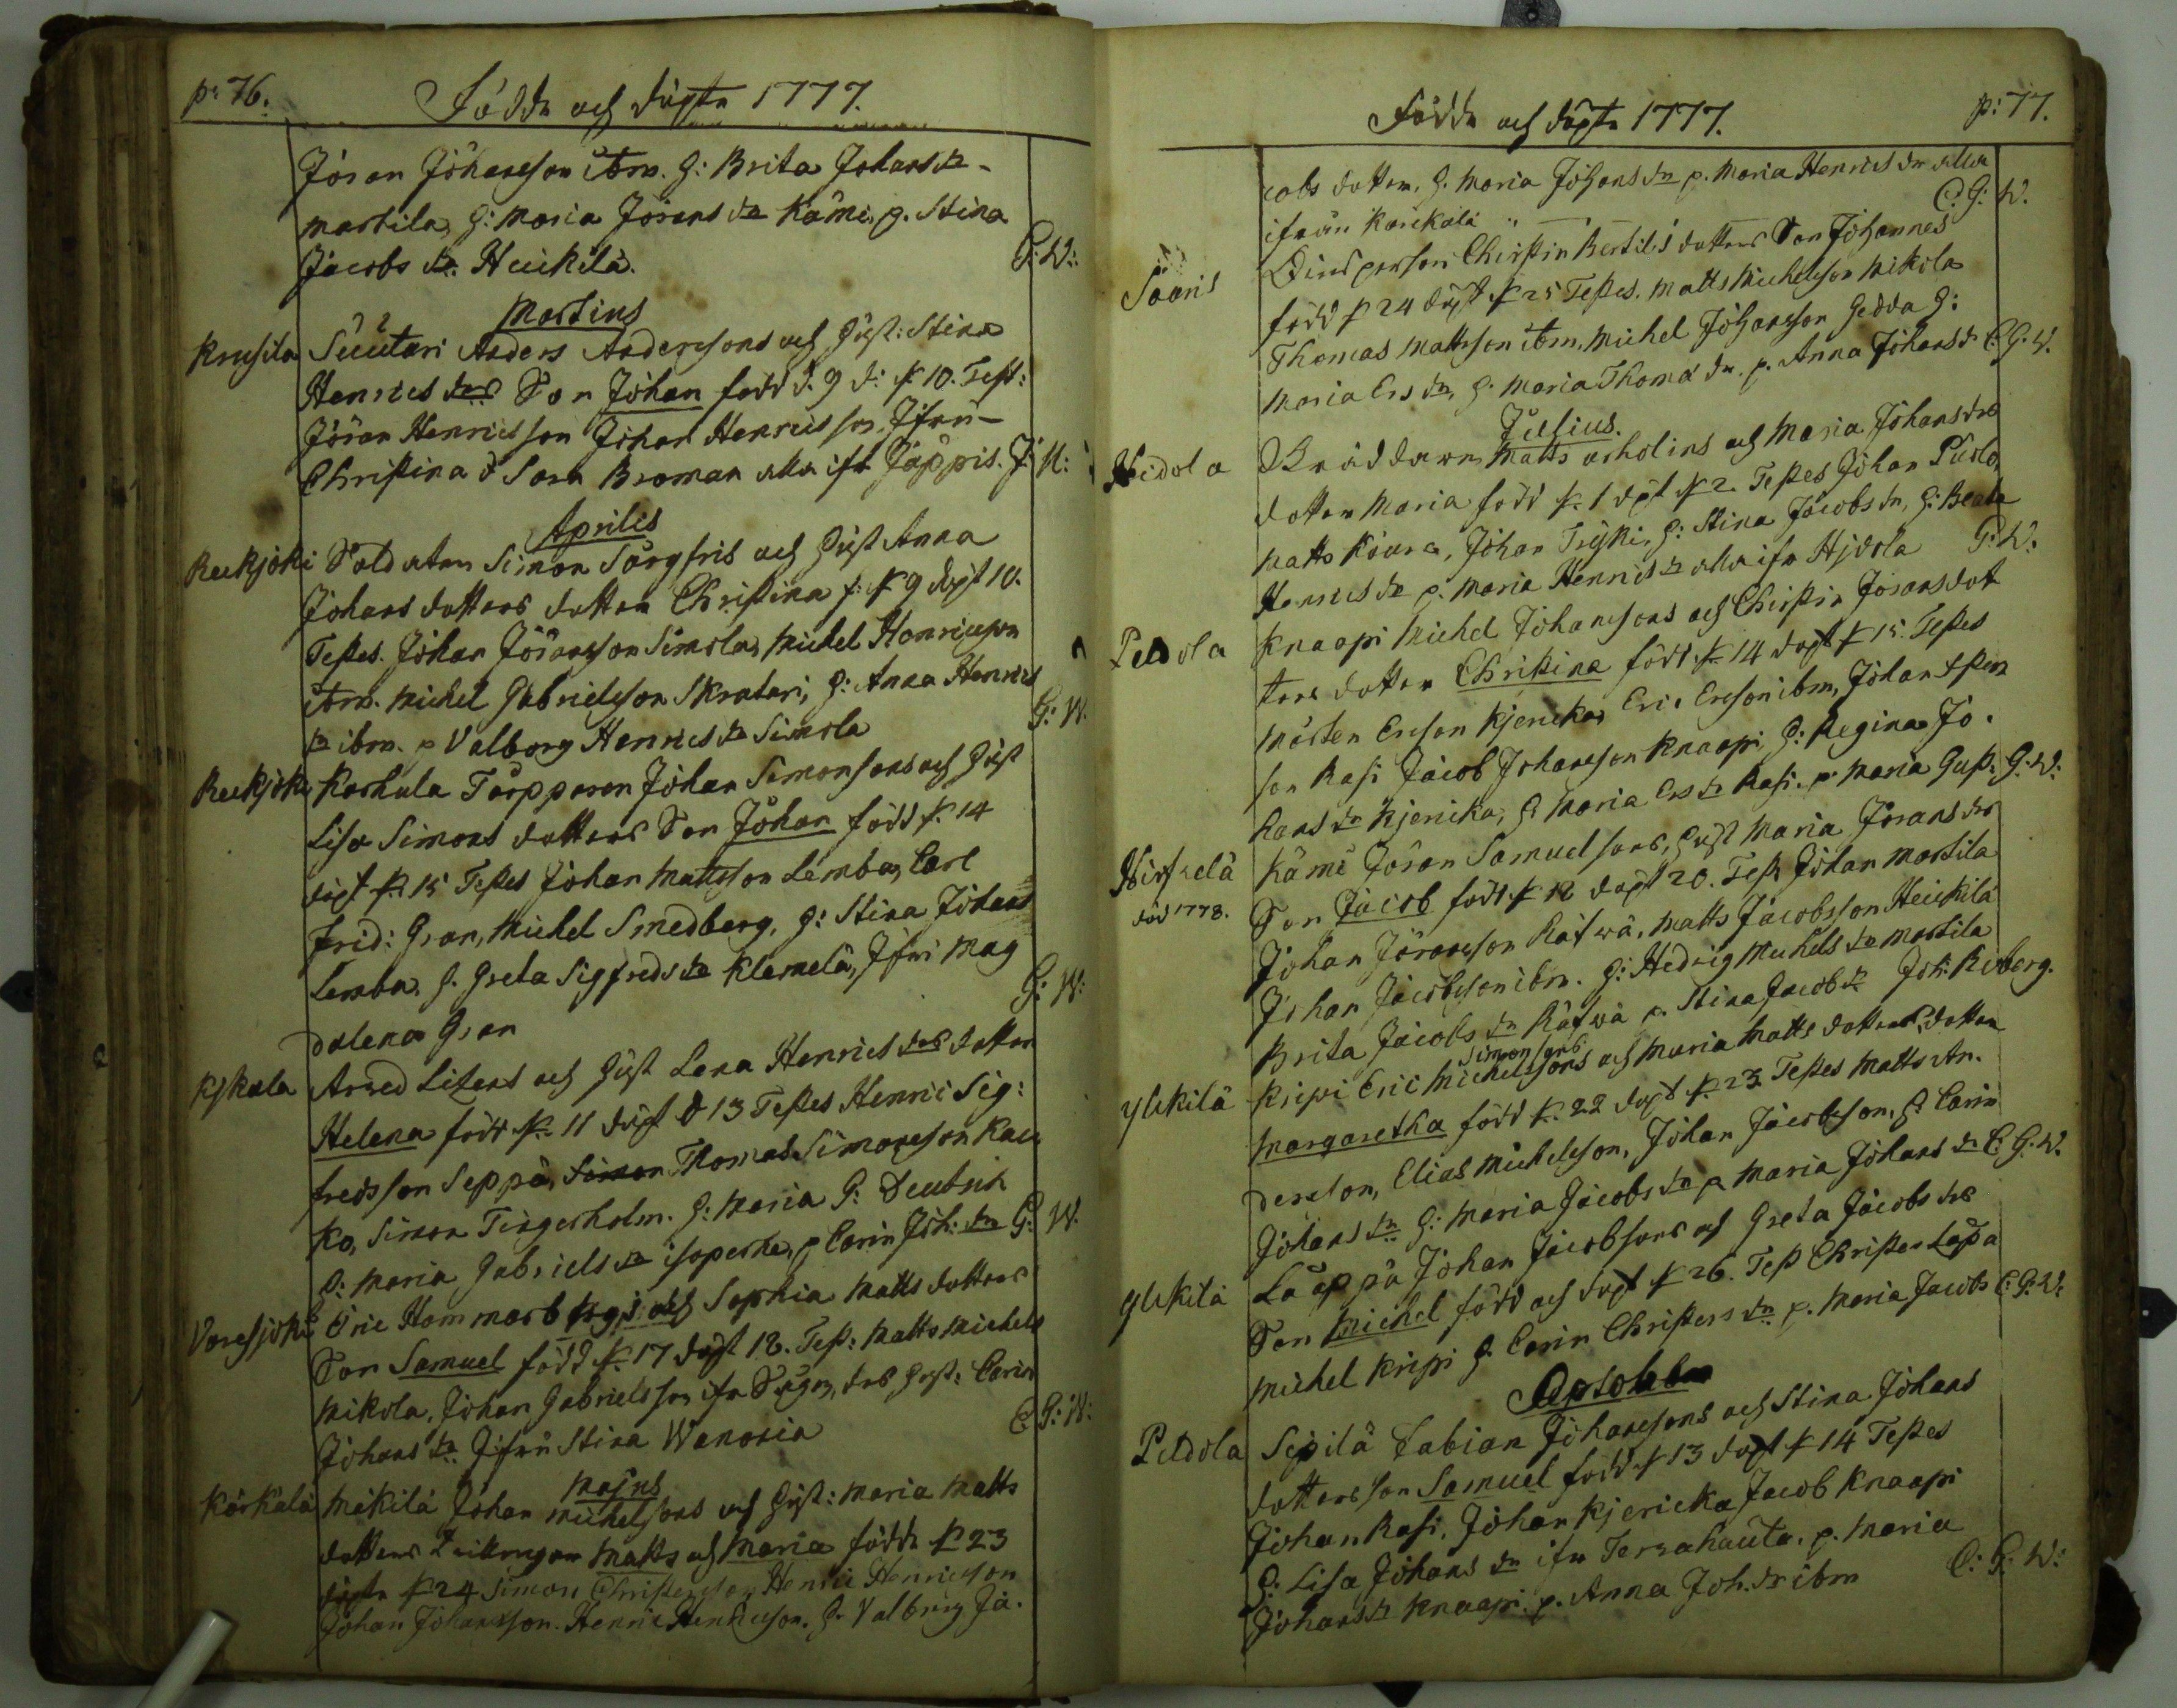 p: 76.
Födde och döpte 1777.
Jöran Johansson ibm. h: Brita Johans dr
martila, h: Maria Jörans dr Kämi, p. Stina
Jacobs dr Heickilä. G: W:
Martius
Krusila Suutari Anders Anderssons och Hust: Stina
Henrics drs Son Johan född d. 9 d: 10. Test:
Jöran Henricsson Johan Henricsson, Jfru
Christina o Sara Broman alla ifr Jäppis. J: N:
Aprilis
Reckjoki Soldaten Simon Sorgfris och Hust Anna
Johans dotters dotter Christina f: 9 döpt 10.
Testes. Johan Jöransson Simola, Michel Henricsson
ibm. Michel Gabrielsson Skratari, h: Anna Henrics
dr ibm. p Valborg Henrics dr Simola G: W.
Reckjoki Karhula Torpparen Johan Simonsons och Hust
Lisa Simons dotters Son Johan född 14
döpt 15 Testes Johan Mattsson Lemba, Carl
Frid: Gran, Michel Smedberg, h: Stina Johans
Lemba. h. Greta Sigfreds dr Klemelä, Jfru Mag
dalena Gran G: W:
Kjkala Arved Litens och Hust Lena Henrics drs dotter
Helena född 11 döpt d 13 Testes Henric Sig:
fredsson Seppä, Simon Thomas Simonsson Kau
ko, Simon Tingerholm. h: Maria G: Deutsch
h: Maria Gabriels dr isoperhe, p Carin Joh: dr G: W.
Varesjoki Eric Hammarbergs och Sophia Matts dotters
Son Samuel född 17 döpt 18. Test: Matts Michels
Mikola, Johan Gabrielsson ifr hust: Carin
Johans dr Jfru Stina Wanonia C G: W:
Majus
Karkälä Mäkilä Johan Michelsons och Hust: Maria Matts
dotters Tvillingar Matts och Maria födde 23
döpte 24 Simon Christersson, Henric Henricsson
Johan Johansson. Henric Henricsson. h. Valborg Ja.
Födde och döpte 1777.
p: 77.
cobs dotter, h. Maria Johans dr p. Maria Henrics dr alla
ifrån Karckälä C. G: W.
Saaris Qvinspersons Christin Bertils dotters Son Johannes
född 24 döpt 25 Testes. Matts Michelsson Mikola
Thomas Mattsson ibm. Michel Johansson Gedda h:
Maria Ers dr, h. Maria Thomæ dr. p. Anna Johans dr C. G. W.
Julius.
Hidola Matts arholins och Maria Johans drs
dotter Maria född 1 döpt 2. Testes Johan Puolo,
Matts Koura, Johan Tryki, h: Stina Jacobs dr, h: Beata
Henrics dr p. Maria Henrics dr alla ifr Hidola G: W:
Peldola Knaapi Michel Johanssons och Christin Jöransdot
ters dotter Christina född 14 döpt 15. Testes
Mårten Ersson Kjericka, Eric Ersson ibm, Johan
son Rasi Jacob Johansson Knaapi, h: Regina Jo.
hans dr Kjericka, h Maria Ers dr Rasi. p Maria Gust: G: W:
Hirfzelä Kämi Jöran Samuelsons, hust Maria Jörans drs
död 1778. Son Jacob född 18 döpt 20. Test Johan Martila
Johan Jöransson Rätwä, Matts Jacobsson Heickilä
Johan Jacobsson ibm. h: Hedvig Michels dr Martila
Brita Jacobs dr Rätwä p. Stina Jacobs dr Joh: Reberg.
Simonsons
Ylikilä Kripi Eric Michelssons och Maria Matts dotters dotter
Margaretha född 22 döpt 23 Testes Matts An.
dersson, Elias Michelsson, Johan Jacobsson, h Carin
Johans dr h: Maria Jacobs dr p. Maria Johans dr C. G. W.
Ylikilä Lååppå Johan Jacobsons och Greta Jacobs drs
Son Michel född och döpt 26. Test Christer Lappa
Michel Kripi h. Carin Christers dr p. Maria Jacobs C. G. W.
September
Peldola Sepilä Fabian Johanssons och Stina Johans
dotters son Samuel född 13 döpt 14 Testes
Johan Rasi, Johan Kjericka Jacob Knaapi
h: Lisa Johans dr ifr Tersahauta. p. Maria
Johans dr Knaapi. p. Anna Joh. dr ibm C: G: W: